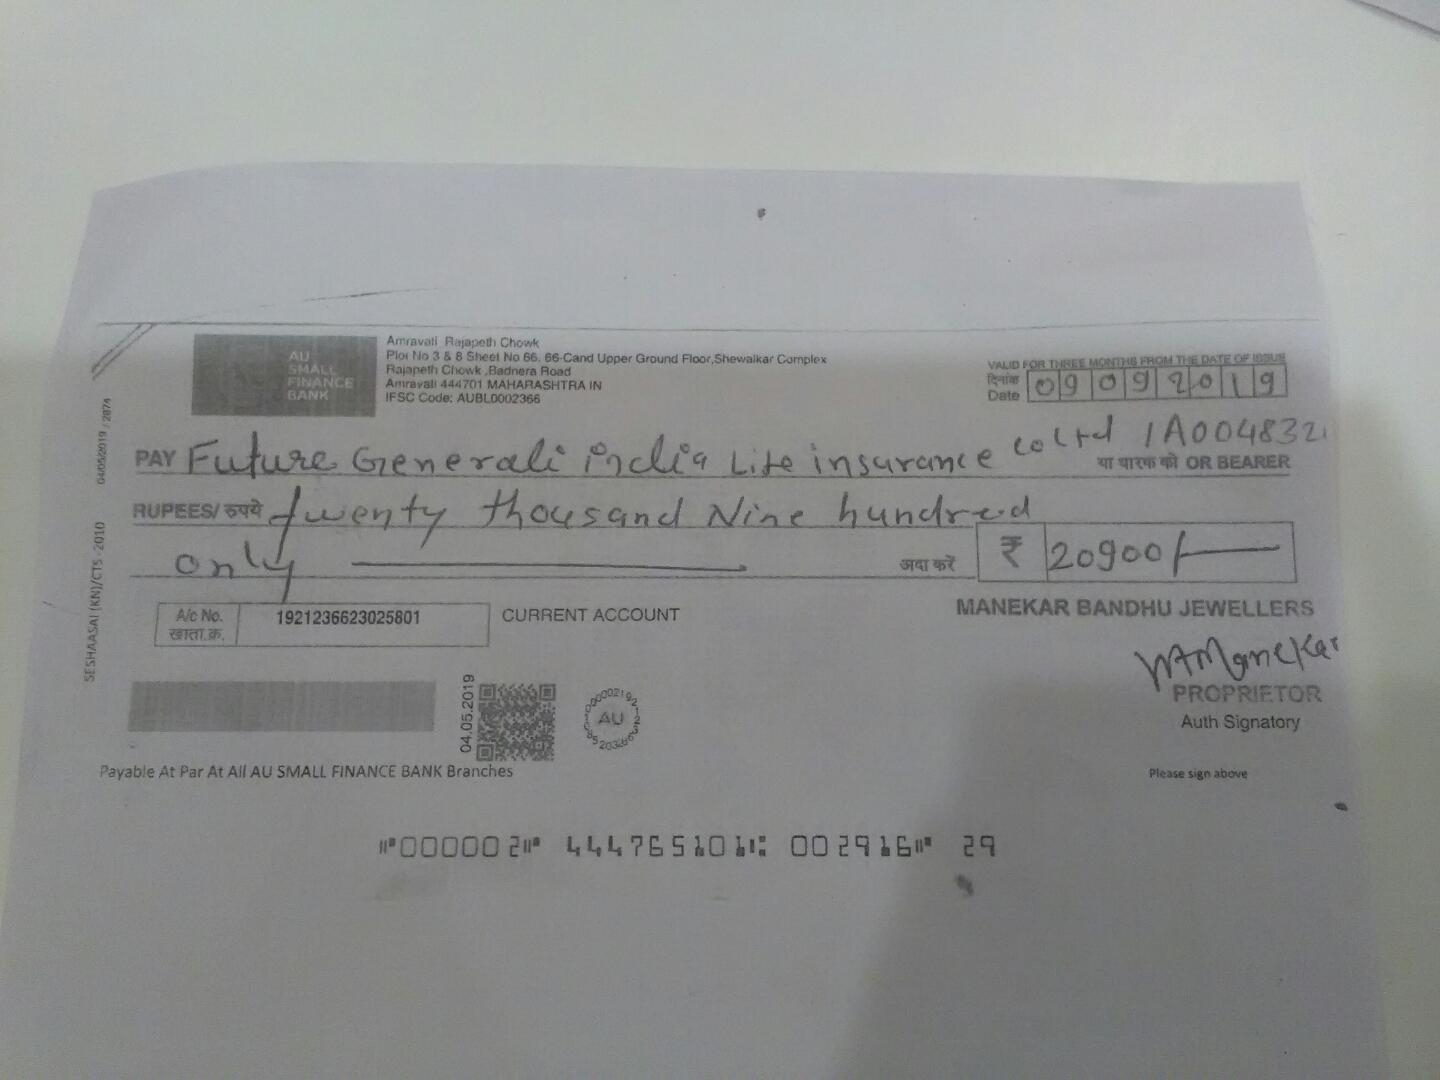 AU
SMALL
FINANCE
BANK
Amravati Rajapeth Chowk
Plot No 3 & 8 Sheet No 66, 66-Cand Upper Ground Floor,Shewalkar Complex
Rajapeth Chowk ,Badnera Road
Amravati 444701 MAHARASHTRA IN
IFSC Code: AUBL0002366
VALID FOR THREE MONTHS FROM THE DATE OF ISSUE
दिनांक
Date 09092019
PAY Future Generali india Life insurance co Ltd 1A0048321
या धारक को OR BEARER
RUPEES/ रुपये twenty thousand Nine hundred
only
अदा करें ₹ 20900/-
A/c No. 1921236623025801
खाता.क्र.
CURRENT ACCOUNT
MANEKAR BANDHU JEWELLERS
Manekar
PROPRIETOR
Auth Signatory
Please sign above
04/05/2019 / 2874
SESHAASAI (KN)/CTS -2010
04.05.2019
AU
Payable At Par At All AU SMALL FINANCE BANK Branches
⑈000002⑈ 444765101⑆ 002916⑈ 29